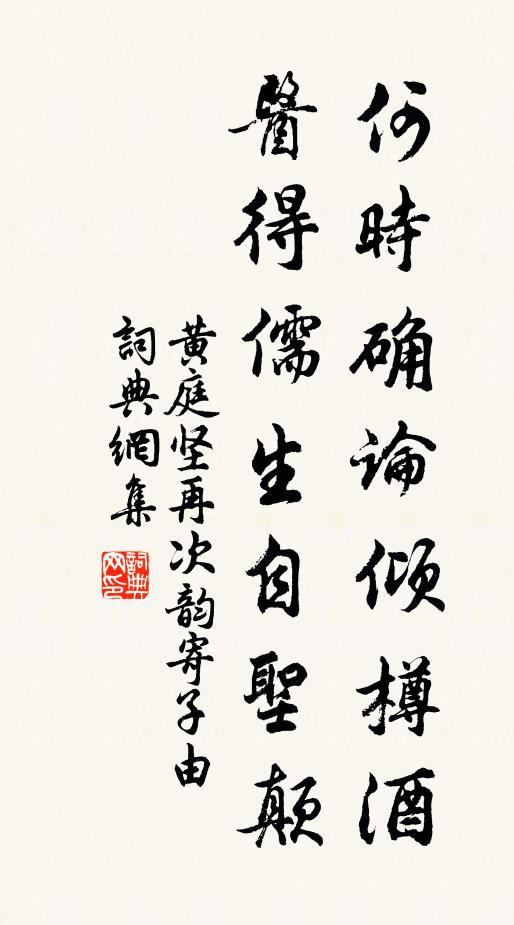 何時确論傾樽酒
醫得儒生自聖顛
黄庭坚再次韵寄子由
詞典網集
詞典网印